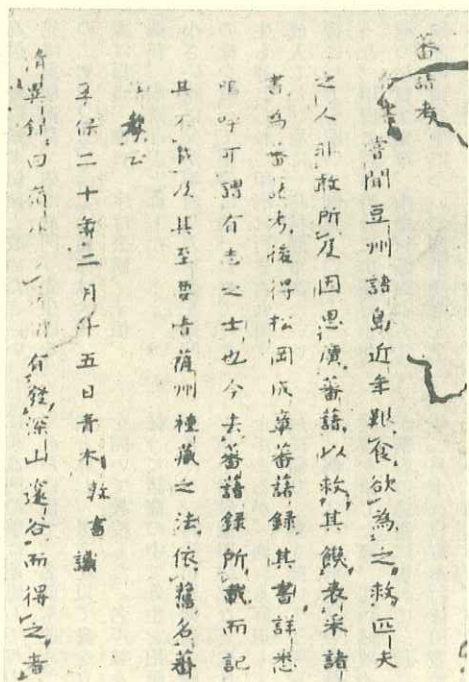 蕃藷考
嘗聞豆州諸島近年艱食欲為之救匹夫
之人非敢所及因思廣蕃藷以救其饑衷采諸
書為蕃藷考後得松岡成章蕃藷録其書詳悉
嗚呼可謂有志之士也今夫蕃藷録所載而記
其不載次其至要者薩州種藏之法依舊名蕃
藷考云
享保二十年二月十五日青木敦書識
清異録曰 有發深山邃谷而得之者